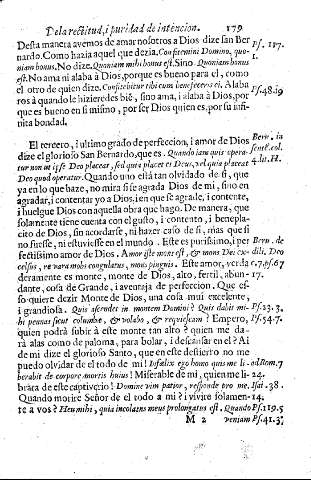 De la rectitud, i puridad de intencion. 179
Desta manera avemos de amar nosotros a Dios dize san Ber
nardo. Como hazia aquel que dezia. Confitemini Domino, quo- Ps. 117.
niam bonus. No dize. Quoniam mihi bonus est. Sino. Quoniam bonus 1.
est. No ama ni alaba à Dios, porque es bueno para el, como
el otro de quien dize. Confitebitur tibi cum benefeceris ei. Alaba Ps. 48. 19
ros à quando le hizieredes biẽ, sino ama, i alaba à Dios, por
que es bueno en si mismo, por ser Dios quien es, por su infi
nita bondad.
El tercero, i ultimo grado de perfeccion, i amor de Dios Bern. in
dize el glorioso San Bernardo, que es. Quando iam quis opera-
tur non ut ipse Deo placeat, sed quia placet ei Deus, vel quia placeat
Deo quod operatur. Quando uno està tan olvidado de si, que 4. lit. H.
ya en lo que haze, no mira si se agrada Dios de mi, sino en
agradar, i contentar yo a Dios, i en que se agrade, i contente,
i huelgue Dios con aquella obra que hago. De manera, que
solamente tiene cuenta con el gusto, i contento, i beneplaci-
to de Dios, sin acordarse, ni hazer caso de si, mas que si
no fuesse, ni estuviesse en el mundo. Este es purissimo, i per Bern. de
fectissimo amor de Dios. Amor iste mons est, & mons Dei ex- dili. Deo
celsus, re vera mons coagulatus, mons pinguis. Este amor, verda c. 7. ps. 67
deramente es monte, monte de Dios, alto, fertil, abun- 17.
dante, cosa de Grande, i aventaja de perfeccion. Que es-
so quiere dezir Monte de Dios, una cosa mui excelente,
i grandiosa. Quis ascendet in montem Domini? Quis dabit mi- Ps. 23. 3.
hi pennas sicut columbæ, & volabo, & requiescam? Empero, Ps. 54. 7.
quien podrà subir à este monte tan alto? quien me da-
rà alas como de paloma, para bolar, i descansar en el? Ai
de mi dize el glorioso Santo, que en este destierro no me
puedo olvidar de el todo de mi! Infœlix ego homo quis me li- ad Rom. 7
berabit de corpore mortis huius! Miserable de mi, quien me li- 24.
brara de este captiverio! Domine vim patior, responde pro me. Isai. 38.
Quando morire Señor de el todo a mi? i vivire solamen- 14.
te a vos? Heu mihi, quia incolatus meus prolongatus est. Quando Ps. 119. 5
M 2 veniam Ps. 41. 3